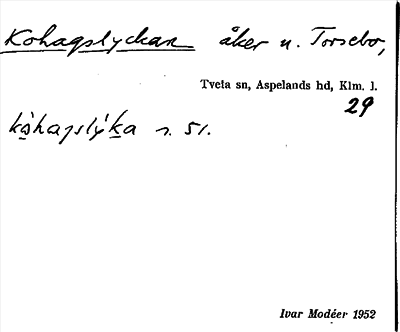 Kohagslyckan åker u. Torsebo,
Tveta sn, Aspelands hd, Klm. l.
29
kòhagslýka s. 51.
Ivar Modéer 1952